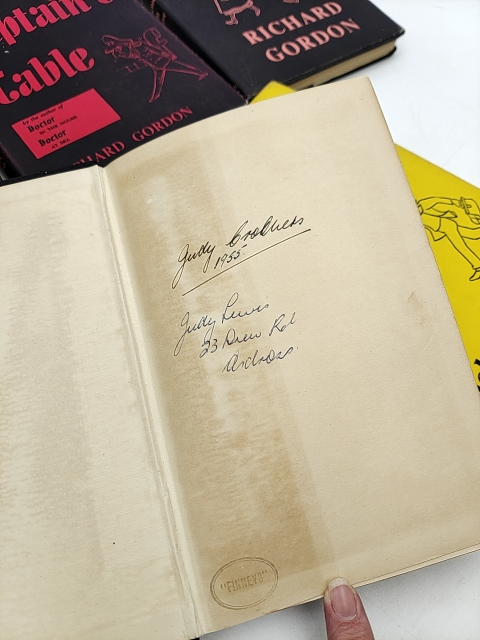 Captain's
Table
by the author of
Doctor
IN THE HOUSE
Doctor
AT SEA
RICHARD GORDON
RICHARD
GORDON
Judy Crothers
1955
Judy Lewis
23 Drew Rd
Ardross.
"FINNEYS"